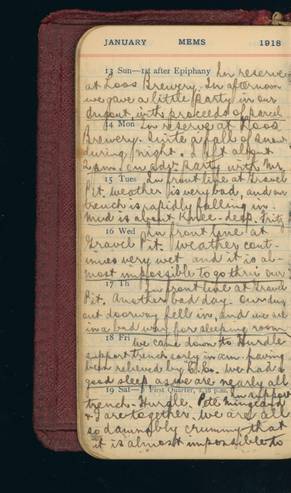 JANUARY MEMS 1918
13 Sun—1st after Epiphany In reserve
at Loos Brewery. In afternoon
we gave a little party in our
dugout, with proceeds of parcel
14 Mon In reserve at Loos
Brewery. Quite a fall of snow
during night. I left about
2 am. on adv. party with Mr
15 Tues In front line at Gravel
Pit, weather is very bad, and our
trench is rapidly falling in.
Mud is about knee-deep. Fritz
16 Wed In front line at
Gravel Pit. Weather cont-
inues very wet and it is al-
most impossible to go thro's our
17 Th In front line at Gravel
Pit, Another bad day. Our dug
out doorway fell in, and we are
in a bad way for sleeping room
18 Fri We came down to Hurdle
support trench early in a.m. having
been relieved by "C." Co. We had a
good sleep as we are nearly all
19 Sat— First Quarter, In support
trench—Hurdle. Pete
& I are together. We are all
so damnably crummy that
it is almost impossible to